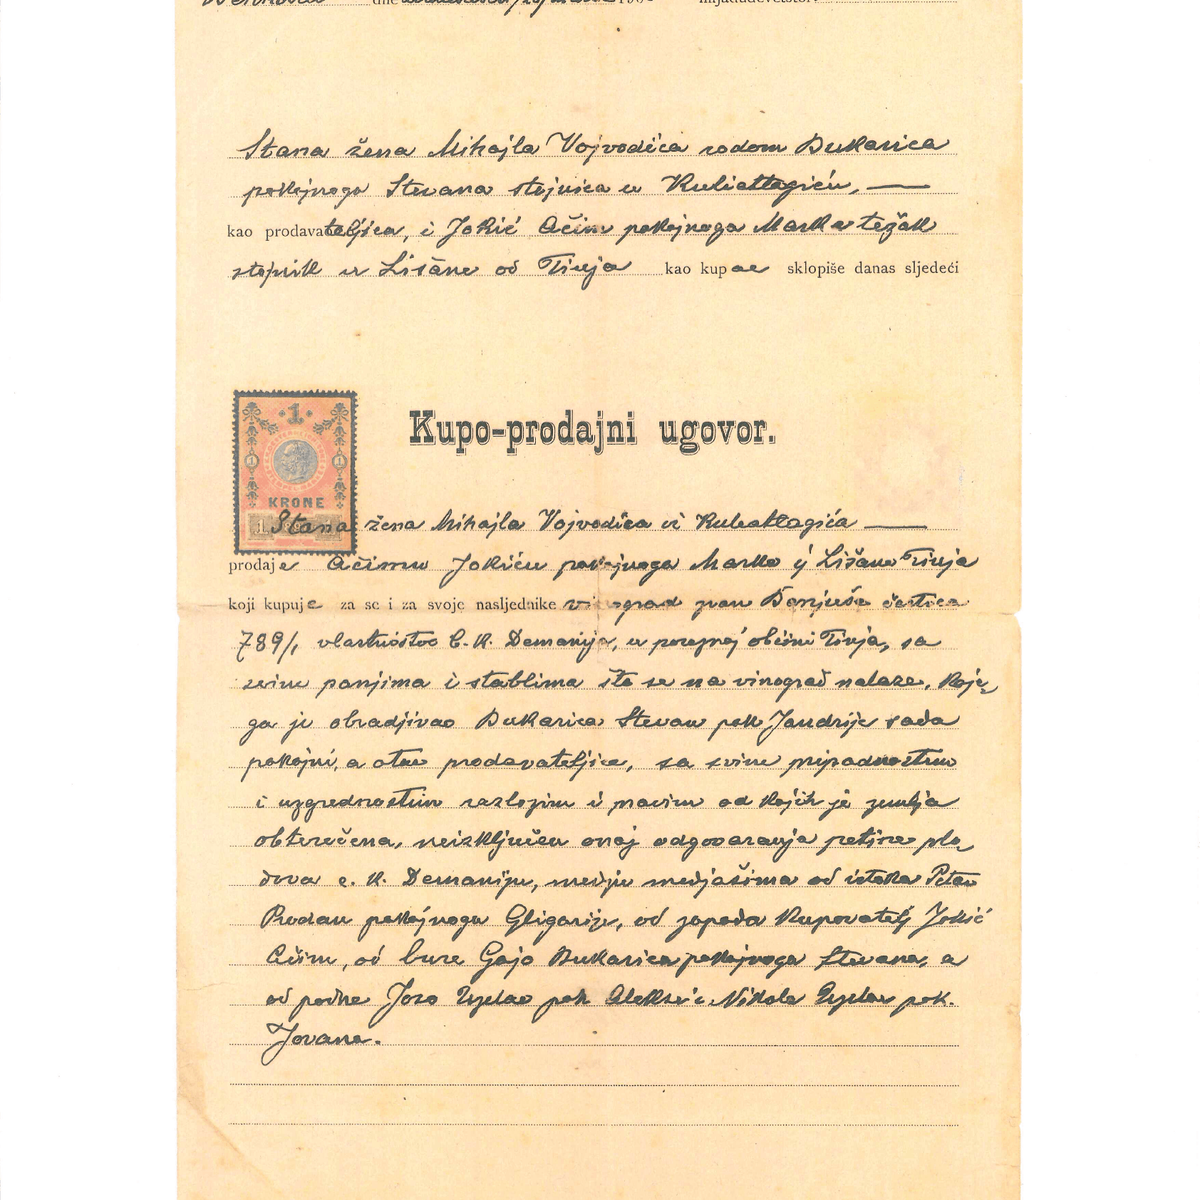 dne
Stana žena Mihajla Vojvodića rodom Dukarica
pokojnoga Stevana stojnica u Kuliattagiću,
kao prodavateljica, i Jokić Aćim pokojnoga Marka težak
stojnik u Lišane od Tinja kao kupac sklopiše danas sljedeći
1
KRONE
Kupo-prodajni ugovor.
Stana žena Mihajla Vojvodića iz Kuliattagića
prodaje Aćimu Jokiću pokojnoga Marka iz Lišane Tinja
koji kupuje za se i za svoje nasljednike vinograd zvan čestica
789/1 vlastništvo C. K. Demanija, u poreznoj obćini Tinja, sa
svim panjima i stablima što se na vinograd nalaze, koje-
ga je obradjivao Dukarica Stevan pok Jandrije sada
pokojni, a otac prodavateljice, sa svim pripadnostim
i uzgrednostim razlozim i pravim od kojih je zemlja
obterećena, neizključen onaj odgovaranja petine plo-
dova c. K. Demaniju, medju medjašima od istoka Petar
Rodan pokojnoga Gligorije, od zapada Kupovatelj Jokić
Aćim, od bure Gajo Dukarica pokojnoga Stevana, a
od podne Joso pok Alekse i Nikola pok.
Jovana.